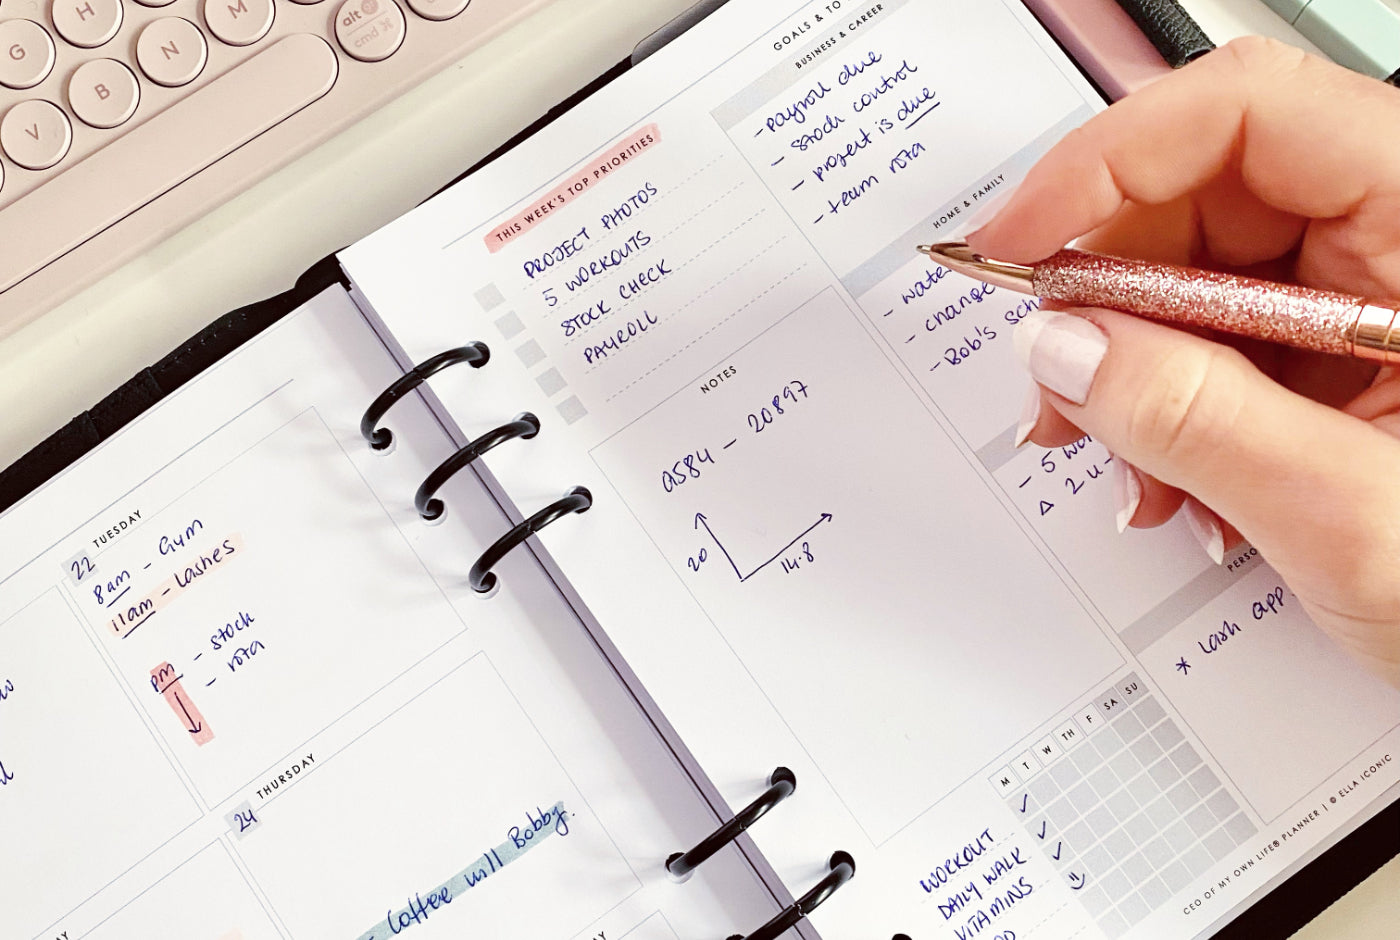 G
H
M
alt
cmd ⌘
V
B
N
TUESDAY
22
8am - Gym
11am - Lashes
pm - stock
- rota
THURSDAY
24
- Coffee will Bobby.
THIS WEEK'S TOP PRIORITIES
PROJECT PHOTOS
5 WORKOUTS
STOCK CHECK
PAYROLL
NOTES
A584 - 20897
20
14.8
GOALS & TO
BUSINESS & CAREER
- payroll due
- stock control
- project is due
- team rota
HOME & FAMILY
- change
- Bob's
- 5
2
* lash app.
M T W TH F SA SU
WORKOUT ✓
DAILY WALK ✓
VITAMINS ✓
CEO OF MY OWN LIFE® PLANNER | © ELLA ICONIC